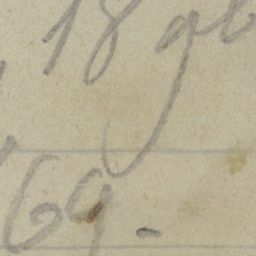 , 18 gb
69 -